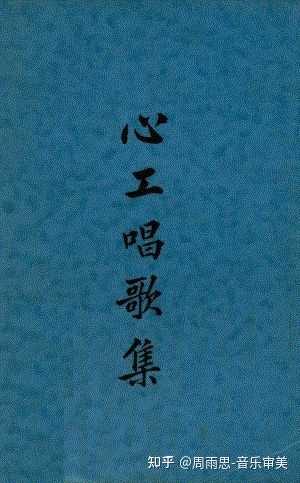 心工唱歌集
知乎 @周雨思-音乐审美